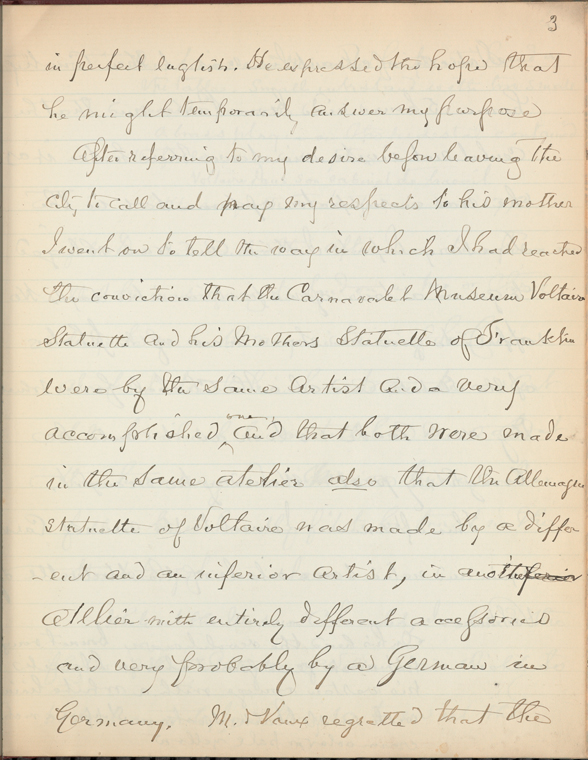 3
in perfect english. He expressed the hope that
he might temporarily answer my purpose
After referring to my desire before leaving the
city to call and pay my respects to his mother
I went on to tell the way in which I had reached
the conviction that the Carnavalet Museum Voltaire
Statuette and his Mothers Statuette of Franklin
were by the same artist and a very
one,
accomplished, and that both were made
in the same atelier also that the Allemagne
statuette of Voltaire was made by a differ
-ent and an inferior artist, in another
atelier with entirely different accessories
and very probably by a German in
Germany. M. de Vaux regretted that the